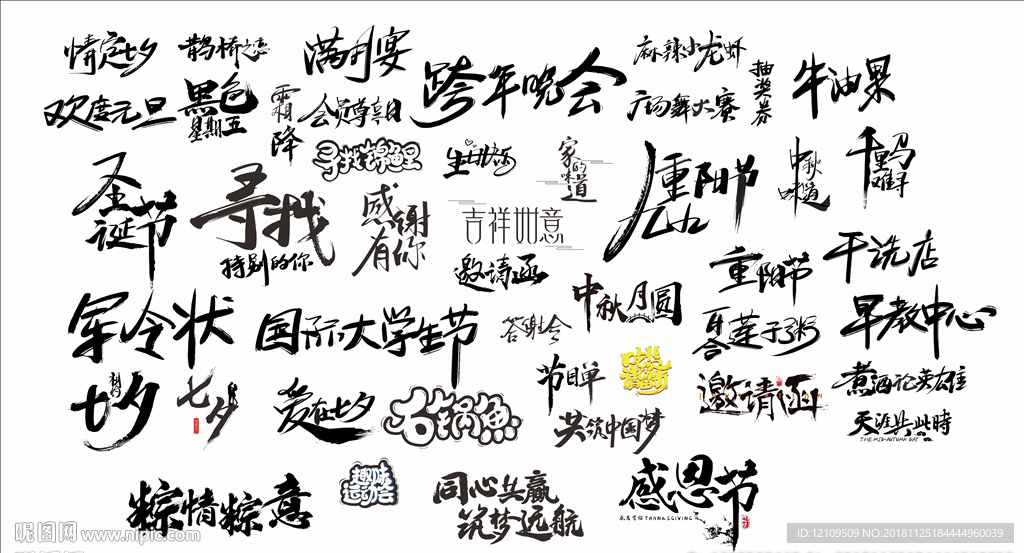 情定七夕
鹊桥之恋
满月宴
跨年晚会
麻辣小龙虾
抽奖券
牛油果
欢度元旦
黑色
星期五
霜降
会员尊享日
广场舞大赛
寻找锦鲤
生日快乐
家的味道
重阳节
九九
中秋
味道
千里马
难寻
圣诞节
寻找
特别的你
感谢
有你
吉祥如意
邀请函
重阳节
干洗店
中秋月圆
军令状
国际大学生节
答谢会
百合莲子粥
早教中心
相约
七夕
七夕
爱在七夕
石锅鱼
节目单
邀请函
煮酒论英雄
共筑中国梦
天涯共此時
THE MID-AUTUMN DAY
粽情粽意
趣味
运动会
同心共赢
筑梦远航
感恩节
感恩吉祥 THANKSGIVING
昵图网 www.nipic.com
ID:12109509 NO:20181125184444960039